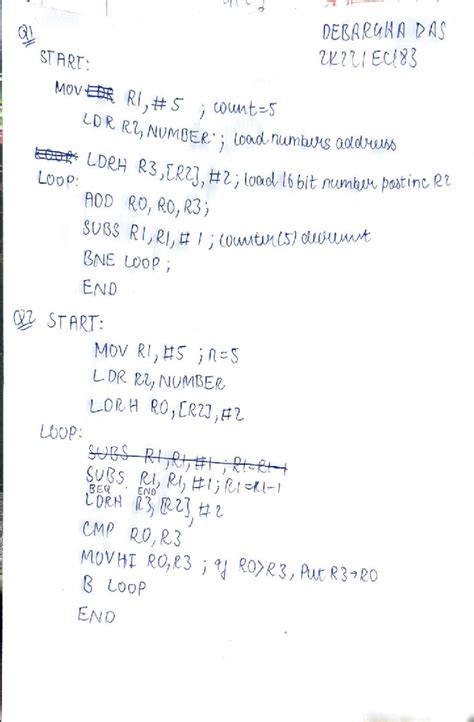 DEBARGHA DAS
2K22/EC/83
Q1
START:
MOV R1, #5 ; count=5
LDR R2, NUMBER ; load numbers address
LDRH R3, [R2], #2 ; load 16 bit number postinc R2
LOOP:
ADD R0, R0, R3;
SUBS R1, R1, #1 ; counter(5) decremnt
BNE LOOP ;
END
Q2 START:
MOV R1, #5 ; n=5
LDR R2, NUMBER
LDRH R0, [R2], #2
LOOP:
SUBS R1, R1, #1 ; R1=R1-1
SUBS R1, R1, #1 ; R1=R1-1
BEQ END
LDRH R3, [R2], #2
CMP R0, R3
MOVHI R0, R3 ; if R0>R3, Put R3→R0
B LOOP
END